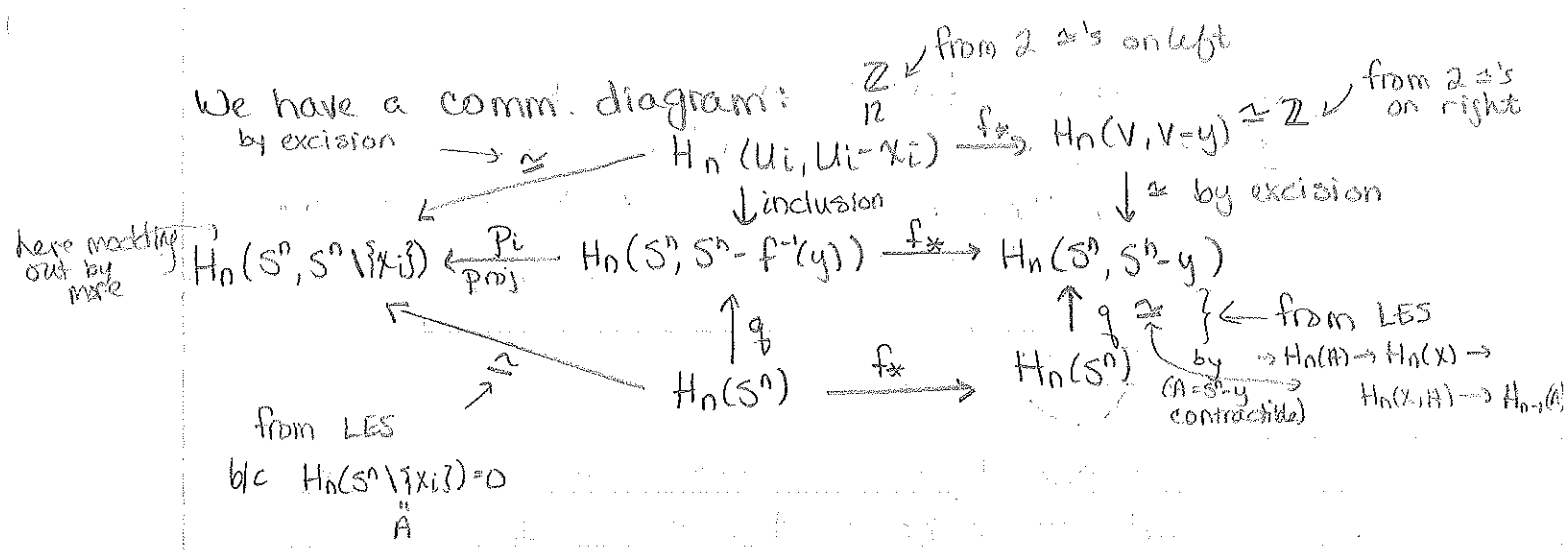 from 2 ≃'s on left
ℤ
from 2 ≃'s on right
We have a comm. diagram:
by excision
≃
Hn(Ui, Ui-xi) f* Hn(V, V-y) ≃ ℤ
↓ inclusion
↓ ≃ by excision
here modding out by more
Hn(Sⁿ, Sⁿ\{xi}) ← Pi proj Hn(Sⁿ, Sⁿ-f⁻¹(y)) f* → Hn(Sⁿ, Sⁿ-y)
↑ q
↑ q ≃ } ← from LES
≃
Hn(Sⁿ) f* → Hn(Sⁿ)
by (A=Sⁿ-y contractible)
→ Hn(A) → Hn(X) →
Hn(X,A) → Hn-1(A)
from LES
b/c Hn(Sⁿ\{xi})=0
A